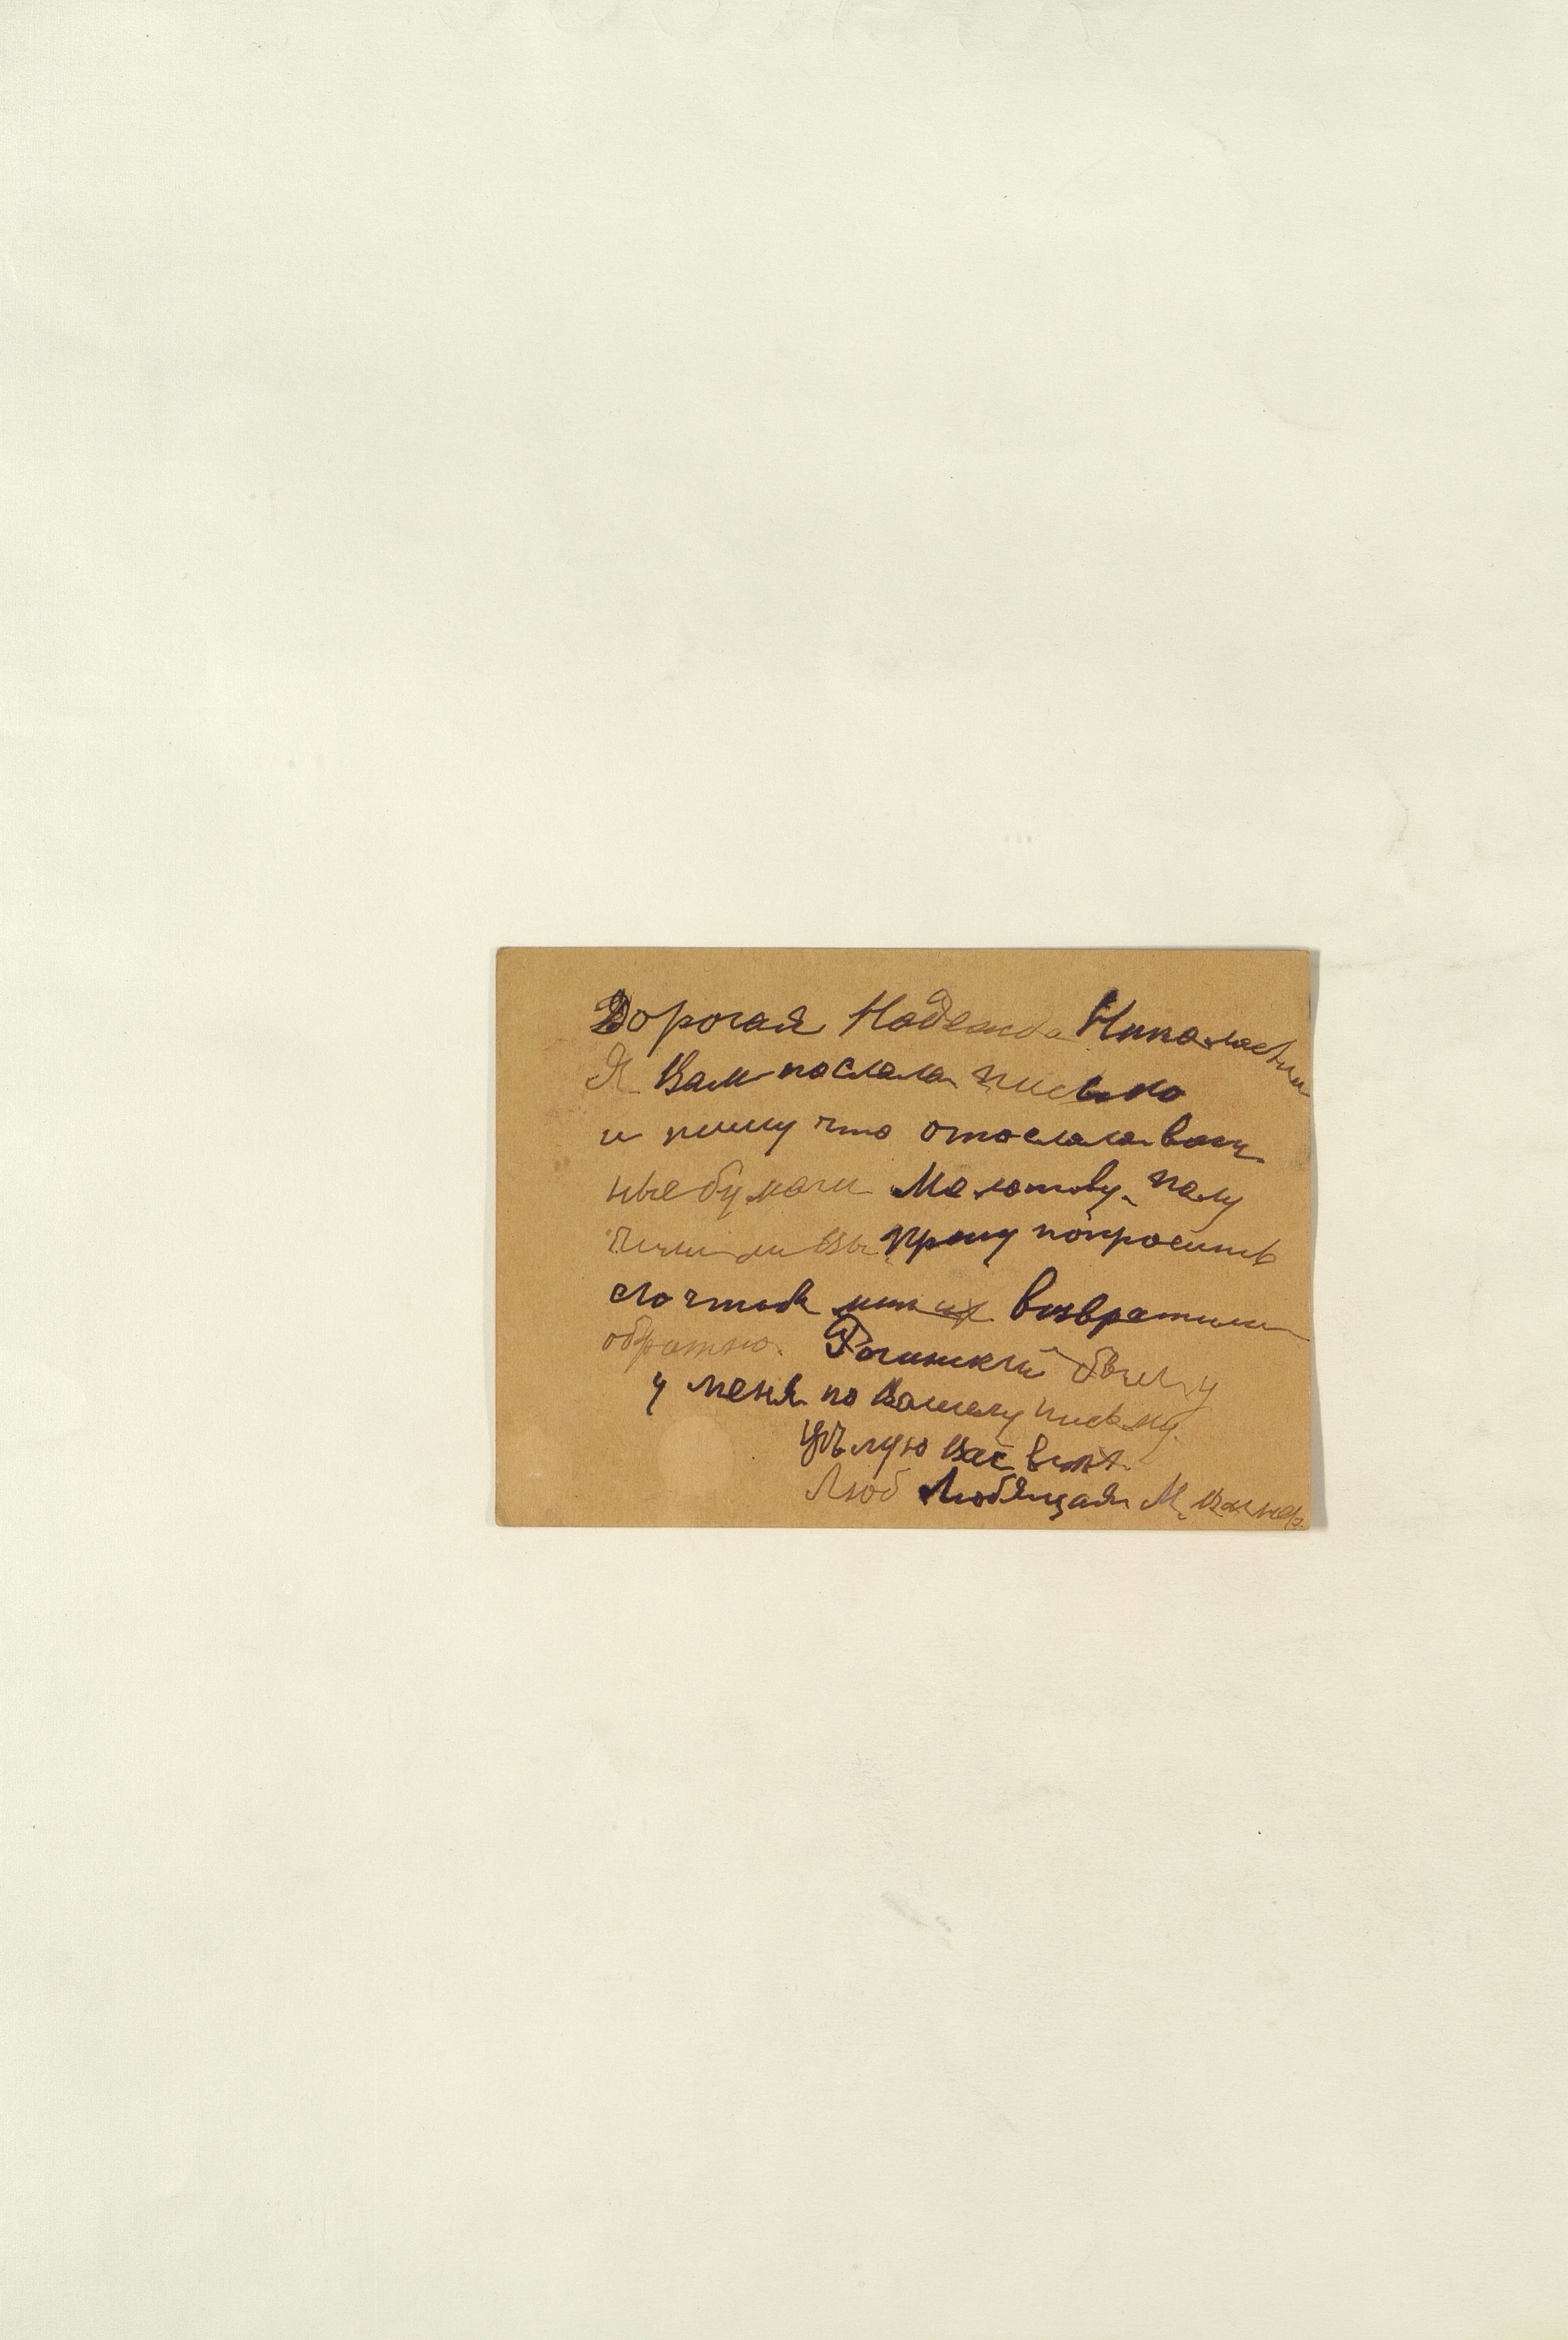 Дорогая Надежда Николаевна
Я Вам послала письмо
и пишу что отослала воен
ные бумаги Молотову. Полу
чили ли Вы. Прошу попросить
его чтоб мне их возвратили
обратно. Рогинский был
у меня по Вашему письму.
Цѣлую Вас всѣх.
Люб Любящая М.